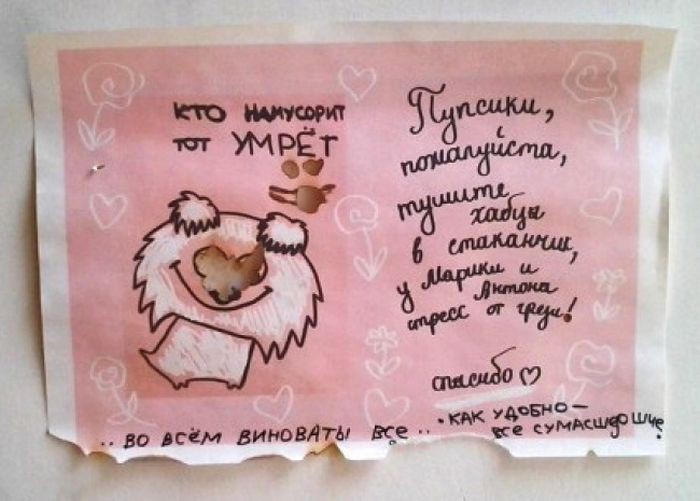 КТО НАМУСОРИТ
ТОТ УМРЁТ
Пупсики,
пожалуйста,
тушите
хабцы
в стаканчик,
у Марики и
Антона
стресс от грязи!
спасибо ♡
.. ВО ВСЁМ ВИНОВАТЫ ВСЕ ..
• КАК УДОБНО —
ВСЕ СУМАСШЕДШИЕ